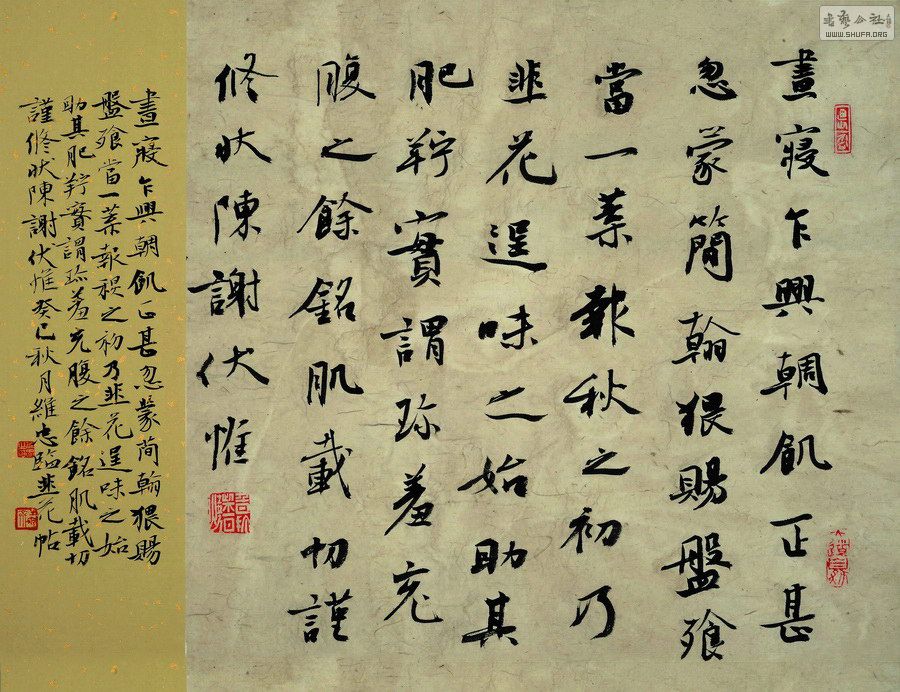 晝寢乍興輖飢正甚
忽蒙簡翰猥賜盤飧
當一葉報秋之初乃
韭花逞味之始助其
肥羜實謂珍羞充
腹之餘銘肌載切謹
修狀陳謝伏惟
晝寢乍興輖飢正甚忽蒙簡翰猥賜
盤飧當一葉報秋之初乃韭花逞味之始
助其肥羜實謂珍羞充腹之餘銘肌載切
謹修狀陳謝伏惟癸巳秋月維忠臨韭花帖
書藝公社
WWW.SHUFA.ORG